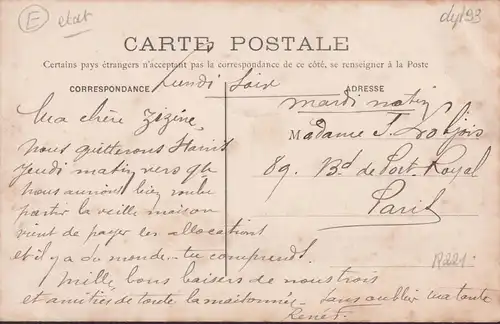 E
etat
CARTE POSTALE
Certains pays étrangers n'acceptant pas la correspondance de ce côté, se renseigner à la Poste
CORRESPONDANCE
ADRESSE
Lundi Soir
Ma chère Zizine,
nous quitterons
jeudi matin vers 9h
nous aurions bien voulu
partir la veille maison
vient de payer les allocations
et il y a du monde. tu comprends.
mille bons baisers de nous trois
et amitiés de toute la maisonnée. Sans oublier ma tante
René F.
mardi matin
Madame J.
89. Bd de Port-Royal
Paris
R221